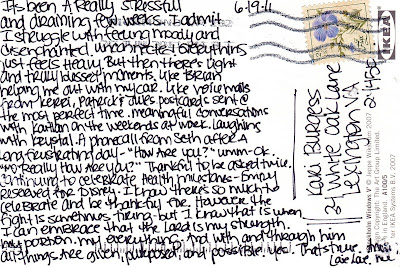 It's been A Really stressful
and draining few weeks. I admit
I struggle with feeling moody and
disenchanted. when life & everything
just feels Heavy. But then there's light
and truly blessed moments, like Brian
helping me out with my car. Like voicemails
from Kernel, Patrick & Julie's postcards sent @
the most perfect time. meaningful conversations
with Kaitlan on the weekends at work. laughing
with Krystal. A phonecall from Seth after A
long frustrating day - "How Are you?" "umm-ok.
"no Really How Are you?" Thankful to be asked twice.
Continuing to celebrate Health in musicians - Emory
Reserved for DISNEY. I know there's so much to
celebrate and be thankful for. However the
fight is sometimes tiring- but I know that is when
I can embrace that the Lord is my strength.
my portion. my everything. And with and through him
all things are given purpose and possible. yes. That is true.
Love Lare, me
6-19-11
Lari Burgess
34 White Oak Lane
Lexington VA
24450
IKEA
A1005
for IKEA Systems B.V. 2007